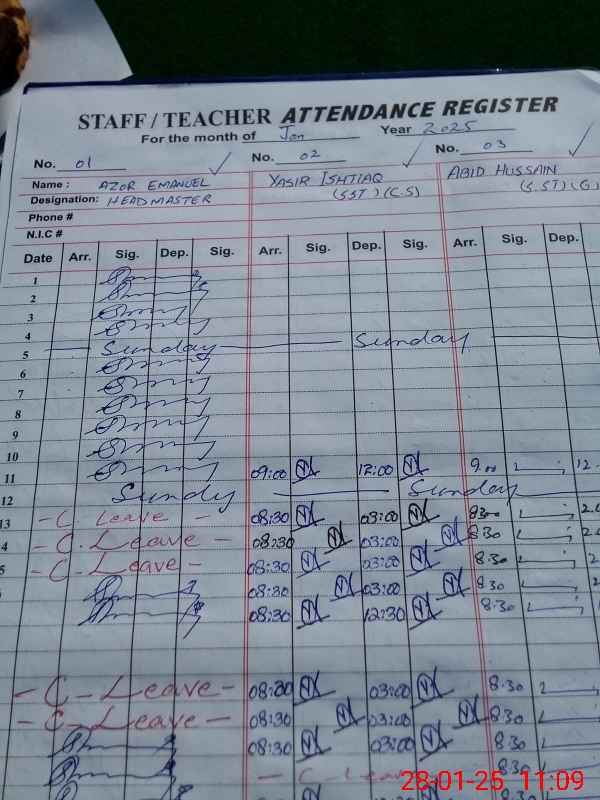 STAFF / TEACHER ATTENDANCE REGISTER
For the month of Jan Year 2025
No. 01 No. 02 No. 03
Name : AZOR EMANUEL YASIR ISHTIAQ ABID HUSSAIN
Designation: HEADMASTER (SST) (C.S) (S.ST) (G)
Phone #
N.I.C #
Date Arr. Sig. Dep. Sig. Arr. Sig. Dep. Sig. Arr. Sig. Dep.
1
2
3
4
5 Sunday Sunday
6
7
8
9
10
11 09:00 12:00 9.00 12.
12 Sunday Sunday
13 - C. Leave - 08:30 03:00 8:30
4 - C. Leave - 08:30 03:00 8:30
5 - C. Leave - 08:30 03:00 8:30
08:30 03:00 8:30
08:30 12:30 8:30
- C - Leave - 08:30 03:00 8.30
- C - Leave - 08:30 03:00 8:30
08:30 03:00 8:30
- C Leave 8:30
28-01-25 11:09